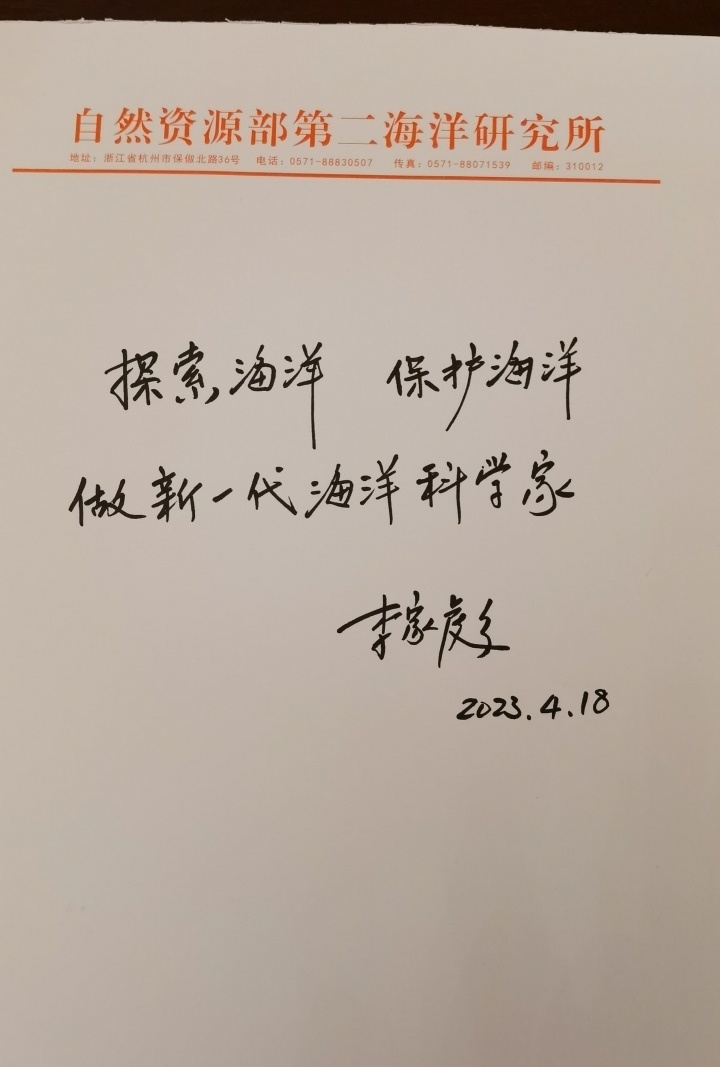 自然资源部第二海洋研究所
地址：浙江省杭州市保俶北路36号 电话：0571-88830507 传真：0571-88071539 邮编：310012
探索海洋 保护海洋
做新一代海洋科学家
李家彪
2023.4.18